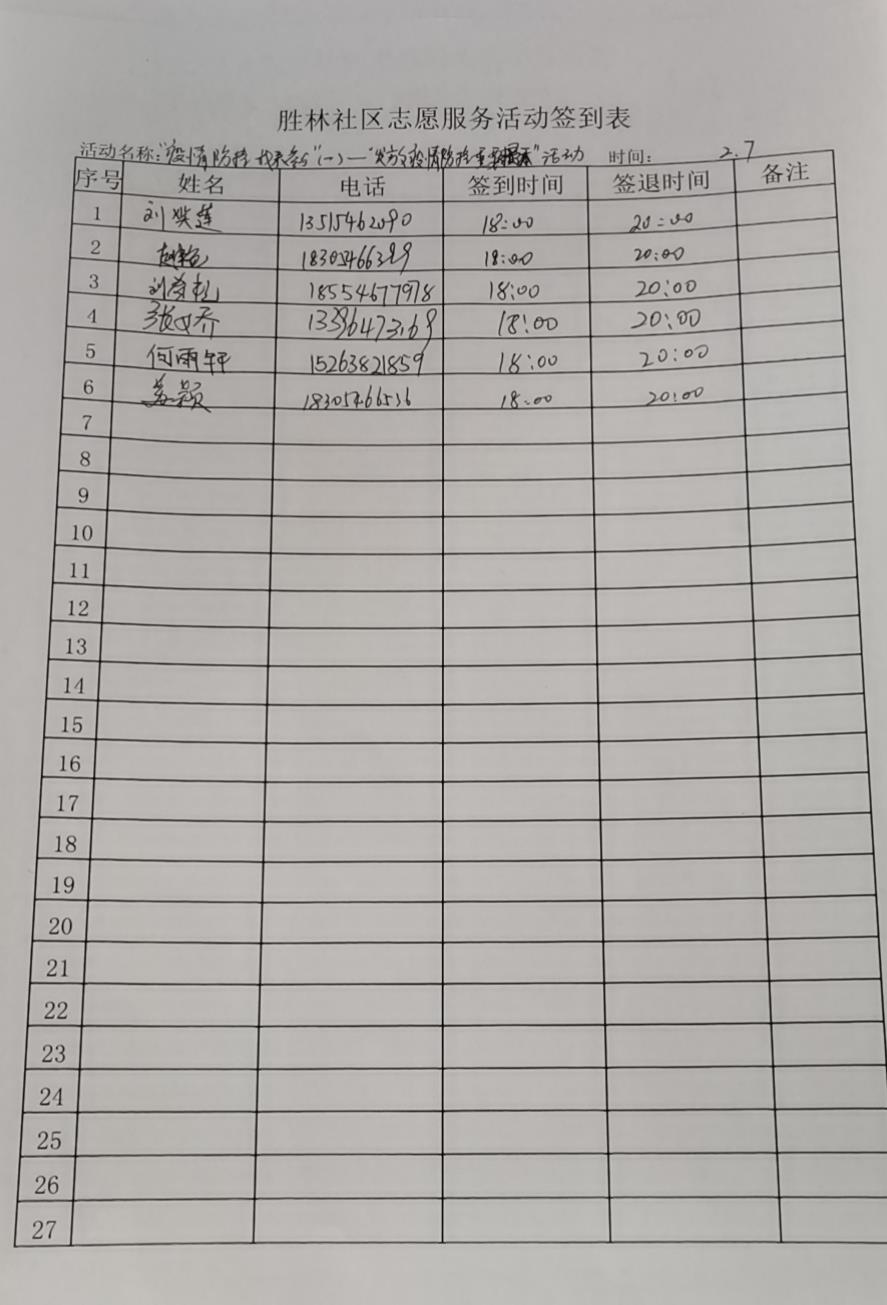 胜林社区志愿服务活动签到表
活动名称："疫情防控 我参与"(一)—"发放疫情防控重要提示"活动 时间： 2.7
序号 姓名 电话 签到时间 签退时间 备注
1 刘 莲 13515462090 18:00 20:00
2 18305466389 18:00 20:00
3 刘 18554677978 18:00 20:00
4 张文乔 18:00 20:00
5 何雨轩 15263821859 18:00 20:00
6 孟颖 18305466536 18:00 20:00
7
8
9
10
11
12
13
14
15
16
17
18
19
20
21
22
23
24
25
26
27